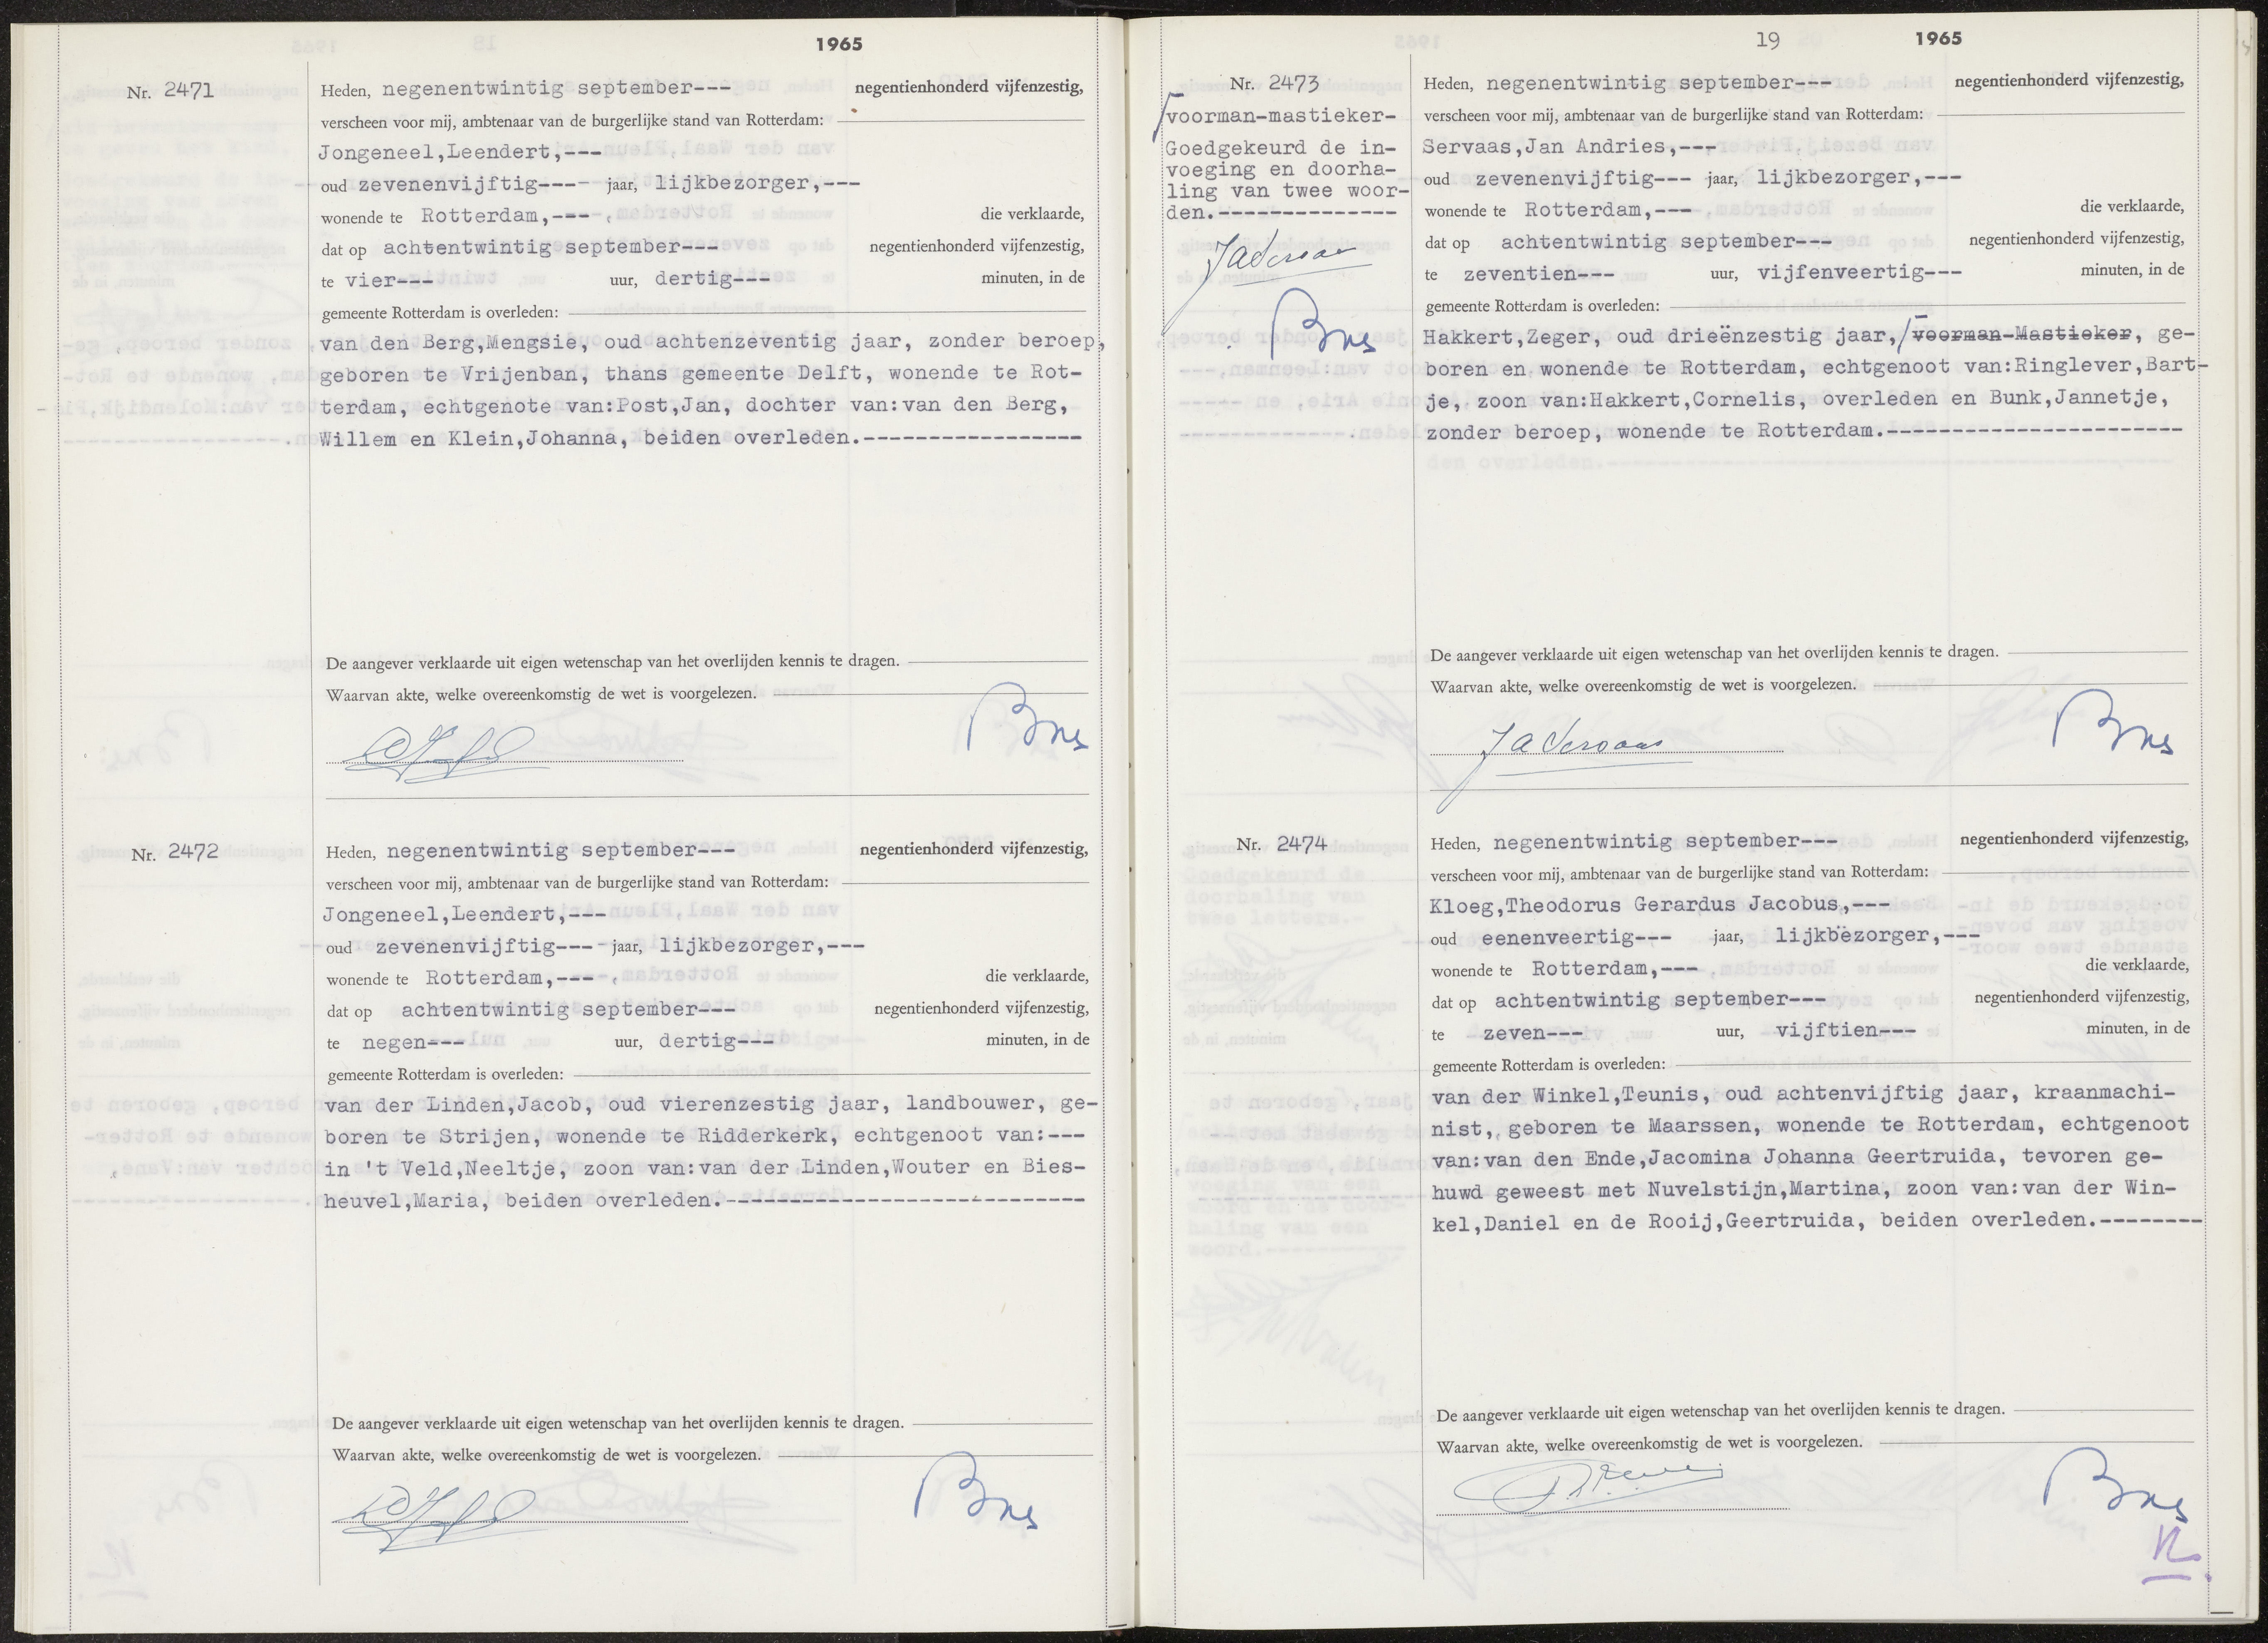 1965
Nr. 2471
Heden, negenentwintig september--- negentienhonderd vijfenzestig,
verscheen voor mij, ambtenaar van de burgerlijke stand van Rotterdam:
Jongeneel,Leendert,---
oud zevenenvijftig---- jaar, lijkbezorger,---
wonende te Rotterdam,--- die verklaarde,
dat op achtentwintig september--- negentienhonderd vijfenzestig,
te vier--- uur, dertig--- minuten, in de
gemeente Rotterdam is overleden:
van den Berg,Mengsie, oud achtenzeventig jaar, zonder beroep,
geboren te Vrijenban, thans gemeente Delft, wonende te Rot-
terdam, echtgenote van:Post,Jan, dochter van:van den Berg,
Willem en Klein,Johanna, beiden overleden.-----------------
De aangever verklaarde uit eigen wetenschap van het overlijden kennis te dragen.
Waarvan akte, welke overeenkomstig de wet is voorgelezen.
Nr. 2472
Heden, negenentwintig september--- negentienhonderd vijfenzestig,
verscheen voor mij, ambtenaar van de burgerlijke stand van Rotterdam:
Jongeneel,Leendert,---
oud zevenenvijftig---- jaar, lijkbezorger,---
wonende te Rotterdam,--- die verklaarde,
dat op achtentwintig september--- negentienhonderd vijfenzestig,
te negen--- uur, dertig--- minuten, in de
gemeente Rotterdam is overleden:
van der Linden,Jacob, oud vierenzestig jaar, landbouwer, ge-
boren te Strijen, wonende te Ridderkerk, echtgenoot van:---
in 't Veld,Neeltje, zoon van:van der Linden,Wouter en Bies-
heuvel,Maria, beiden overleden.----------------------------
De aangever verklaarde uit eigen wetenschap van het overlijden kennis te dragen.
Waarvan akte, welke overeenkomstig de wet is voorgelezen.
19 1965
Nr. 2473
voorman-mastieker-
Goedgekeurd de in-
voeging en doorha-
ling van twee woor-
den.--------------
JAServaas
Heden, negenentwintig september--- negentienhonderd vijfenzestig,
verscheen voor mij, ambtenaar van de burgerlijke stand van Rotterdam:
Servaas,Jan Andries,---
oud zevenenvijftig--- jaar, lijkbezorger,---
wonende te Rotterdam,--- die verklaarde,
dat op achtentwintig september--- negentienhonderd vijfenzestig,
te zeventien--- uur, vijfenveertig--- minuten, in de
gemeente Rotterdam is overleden:
Hakkert,Zeger, oud drieënzestig jaar, voorman-Mastieker, ge-
boren en wonende te Rotterdam, echtgenoot van:Ringlever,Bart-
je, zoon van:Hakkert,Cornelis, overleden en Bunk,Jannetje,
zonder beroep, wonende te Rotterdam.-----------------------
De aangever verklaarde uit eigen wetenschap van het overlijden kennis te dragen.
Waarvan akte, welke overeenkomstig de wet is voorgelezen.
JAServaas
Nr. 2474
Heden, negenentwintig september--- negentienhonderd vijfenzestig,
verscheen voor mij, ambtenaar van de burgerlijke stand van Rotterdam:
Kloeg,Theodorus Gerardus Jacobus,---
oud eenenveertig--- jaar, lijkbezorger,---
wonende te Rotterdam,--- die verklaarde,
dat op achtentwintig september--- negentienhonderd vijfenzestig,
te zeven--- uur, vijftien--- minuten, in de
gemeente Rotterdam is overleden:
van der Winkel,Teunis, oud achtenvijftig jaar, kraanmachi-
nist, geboren te Maarssen, wonende te Rotterdam, echtgenoot
van:van den Ende,Jacomina Johanna Geertruida, tevoren ge-
huwd geweest met Nuvelstijn,Martina, zoon van:van der Win-
kel,Daniel en de Rooij,Geertruida, beiden overleden.--------
De aangever verklaarde uit eigen wetenschap van het overlijden kennis te dragen.
Waarvan akte, welke overeenkomstig de wet is voorgelezen.